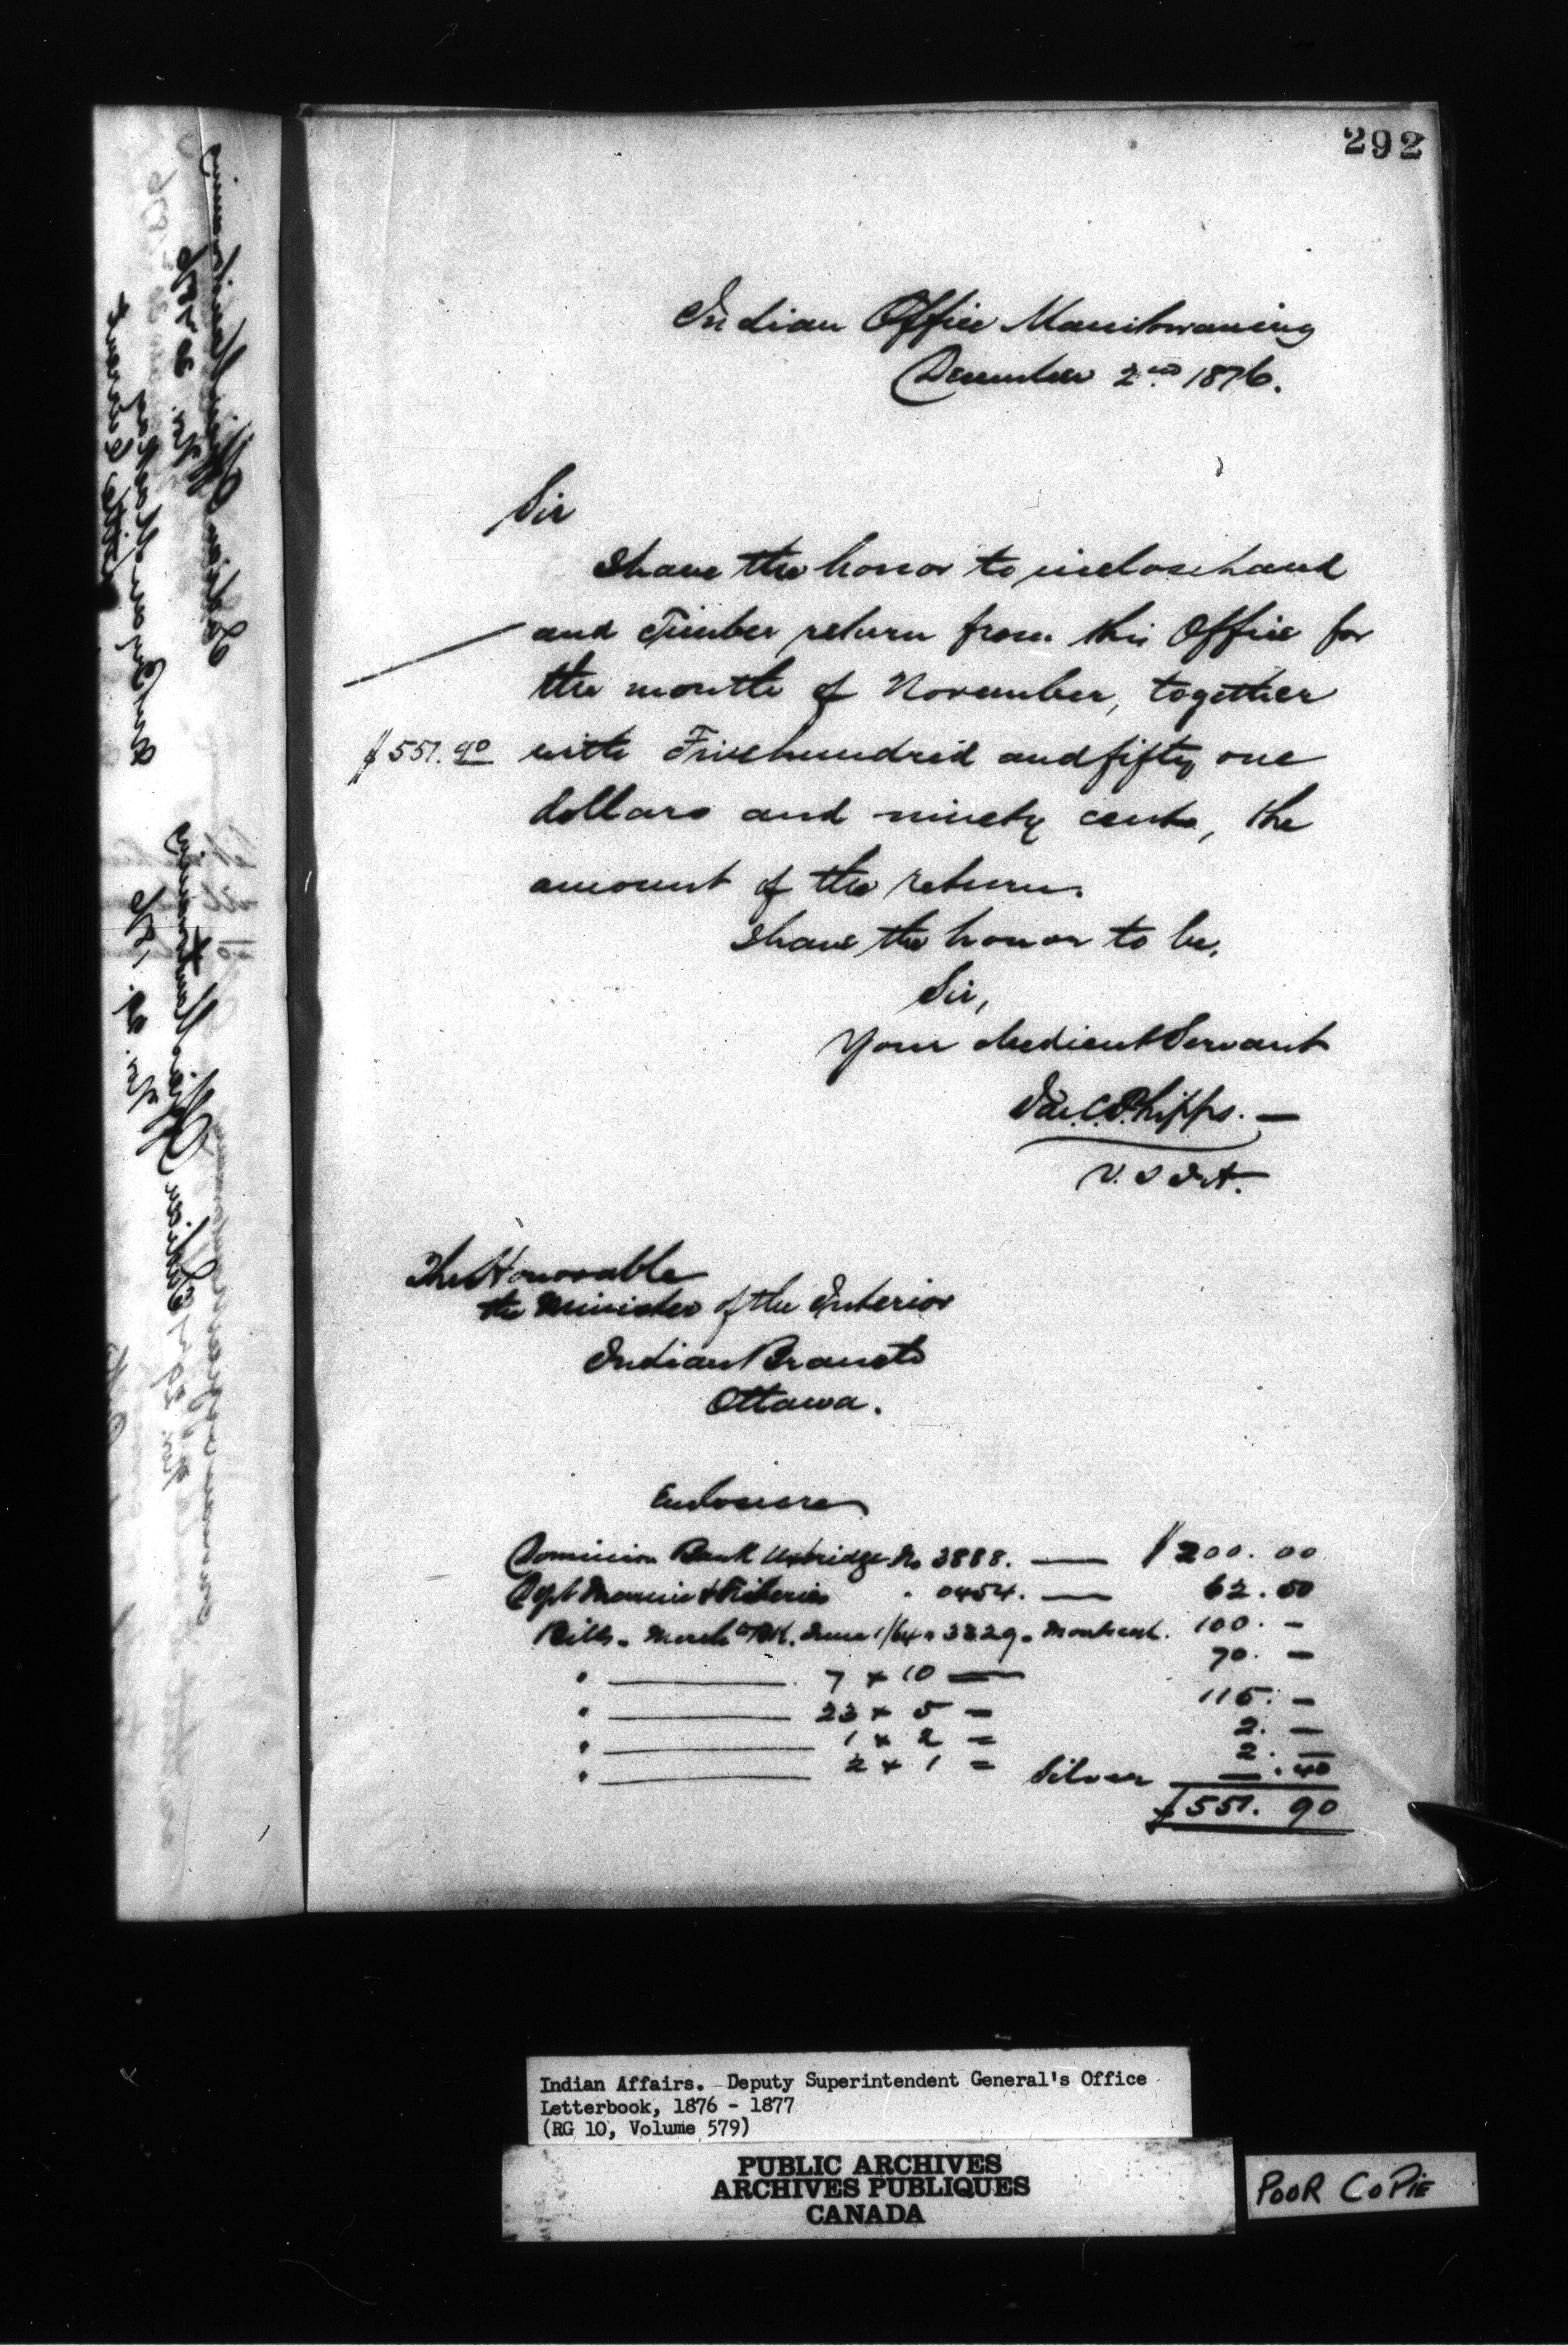 292
Indian Office Manitowaning
December 2nd 1876.
Sir
I have the honor to inclose Land
and Timber return from this Office for
the month of November, together
$551.90 with Five hundred and fifty one
dollars and ninety cents, the
amount of the return.
I have the honor to be,
Sir,
Your obedient Servant
Jas. C. Phipps. —
V. S. I. A.
The Honorable
the Minister of the Interior
Indian Branch
Ottawa.
Enclosures
Dominion Bank Uxbridge No 3888. — $200.00
Dept Marine & Fisheries " 0454. — 62.50
Bills. Merch Bk. June 1/64. 3329. Montreal. 100. —
" — 7 x 10 — 70. —
" — 23 x 5 — 115. —
" — 1 x 2 = 2. —
" — 2 x 1 = 2. —
Silver — .40
$551.90
Indian Affairs. Deputy Superintendent General's Office
Letterbook, 1876 - 1877
(RG 10, Volume 579)
PUBLIC ARCHIVES
ARCHIVES PUBLIQUES
CANADA
POOR COPIE